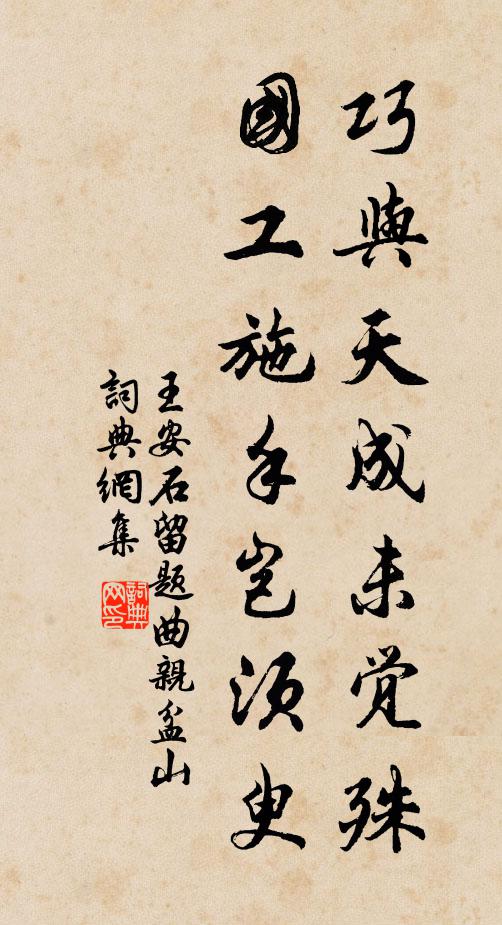 巧與天成未觉殊
國工施手岂須臾
王安石留题曲親盆山
詞典網集
詞典网印